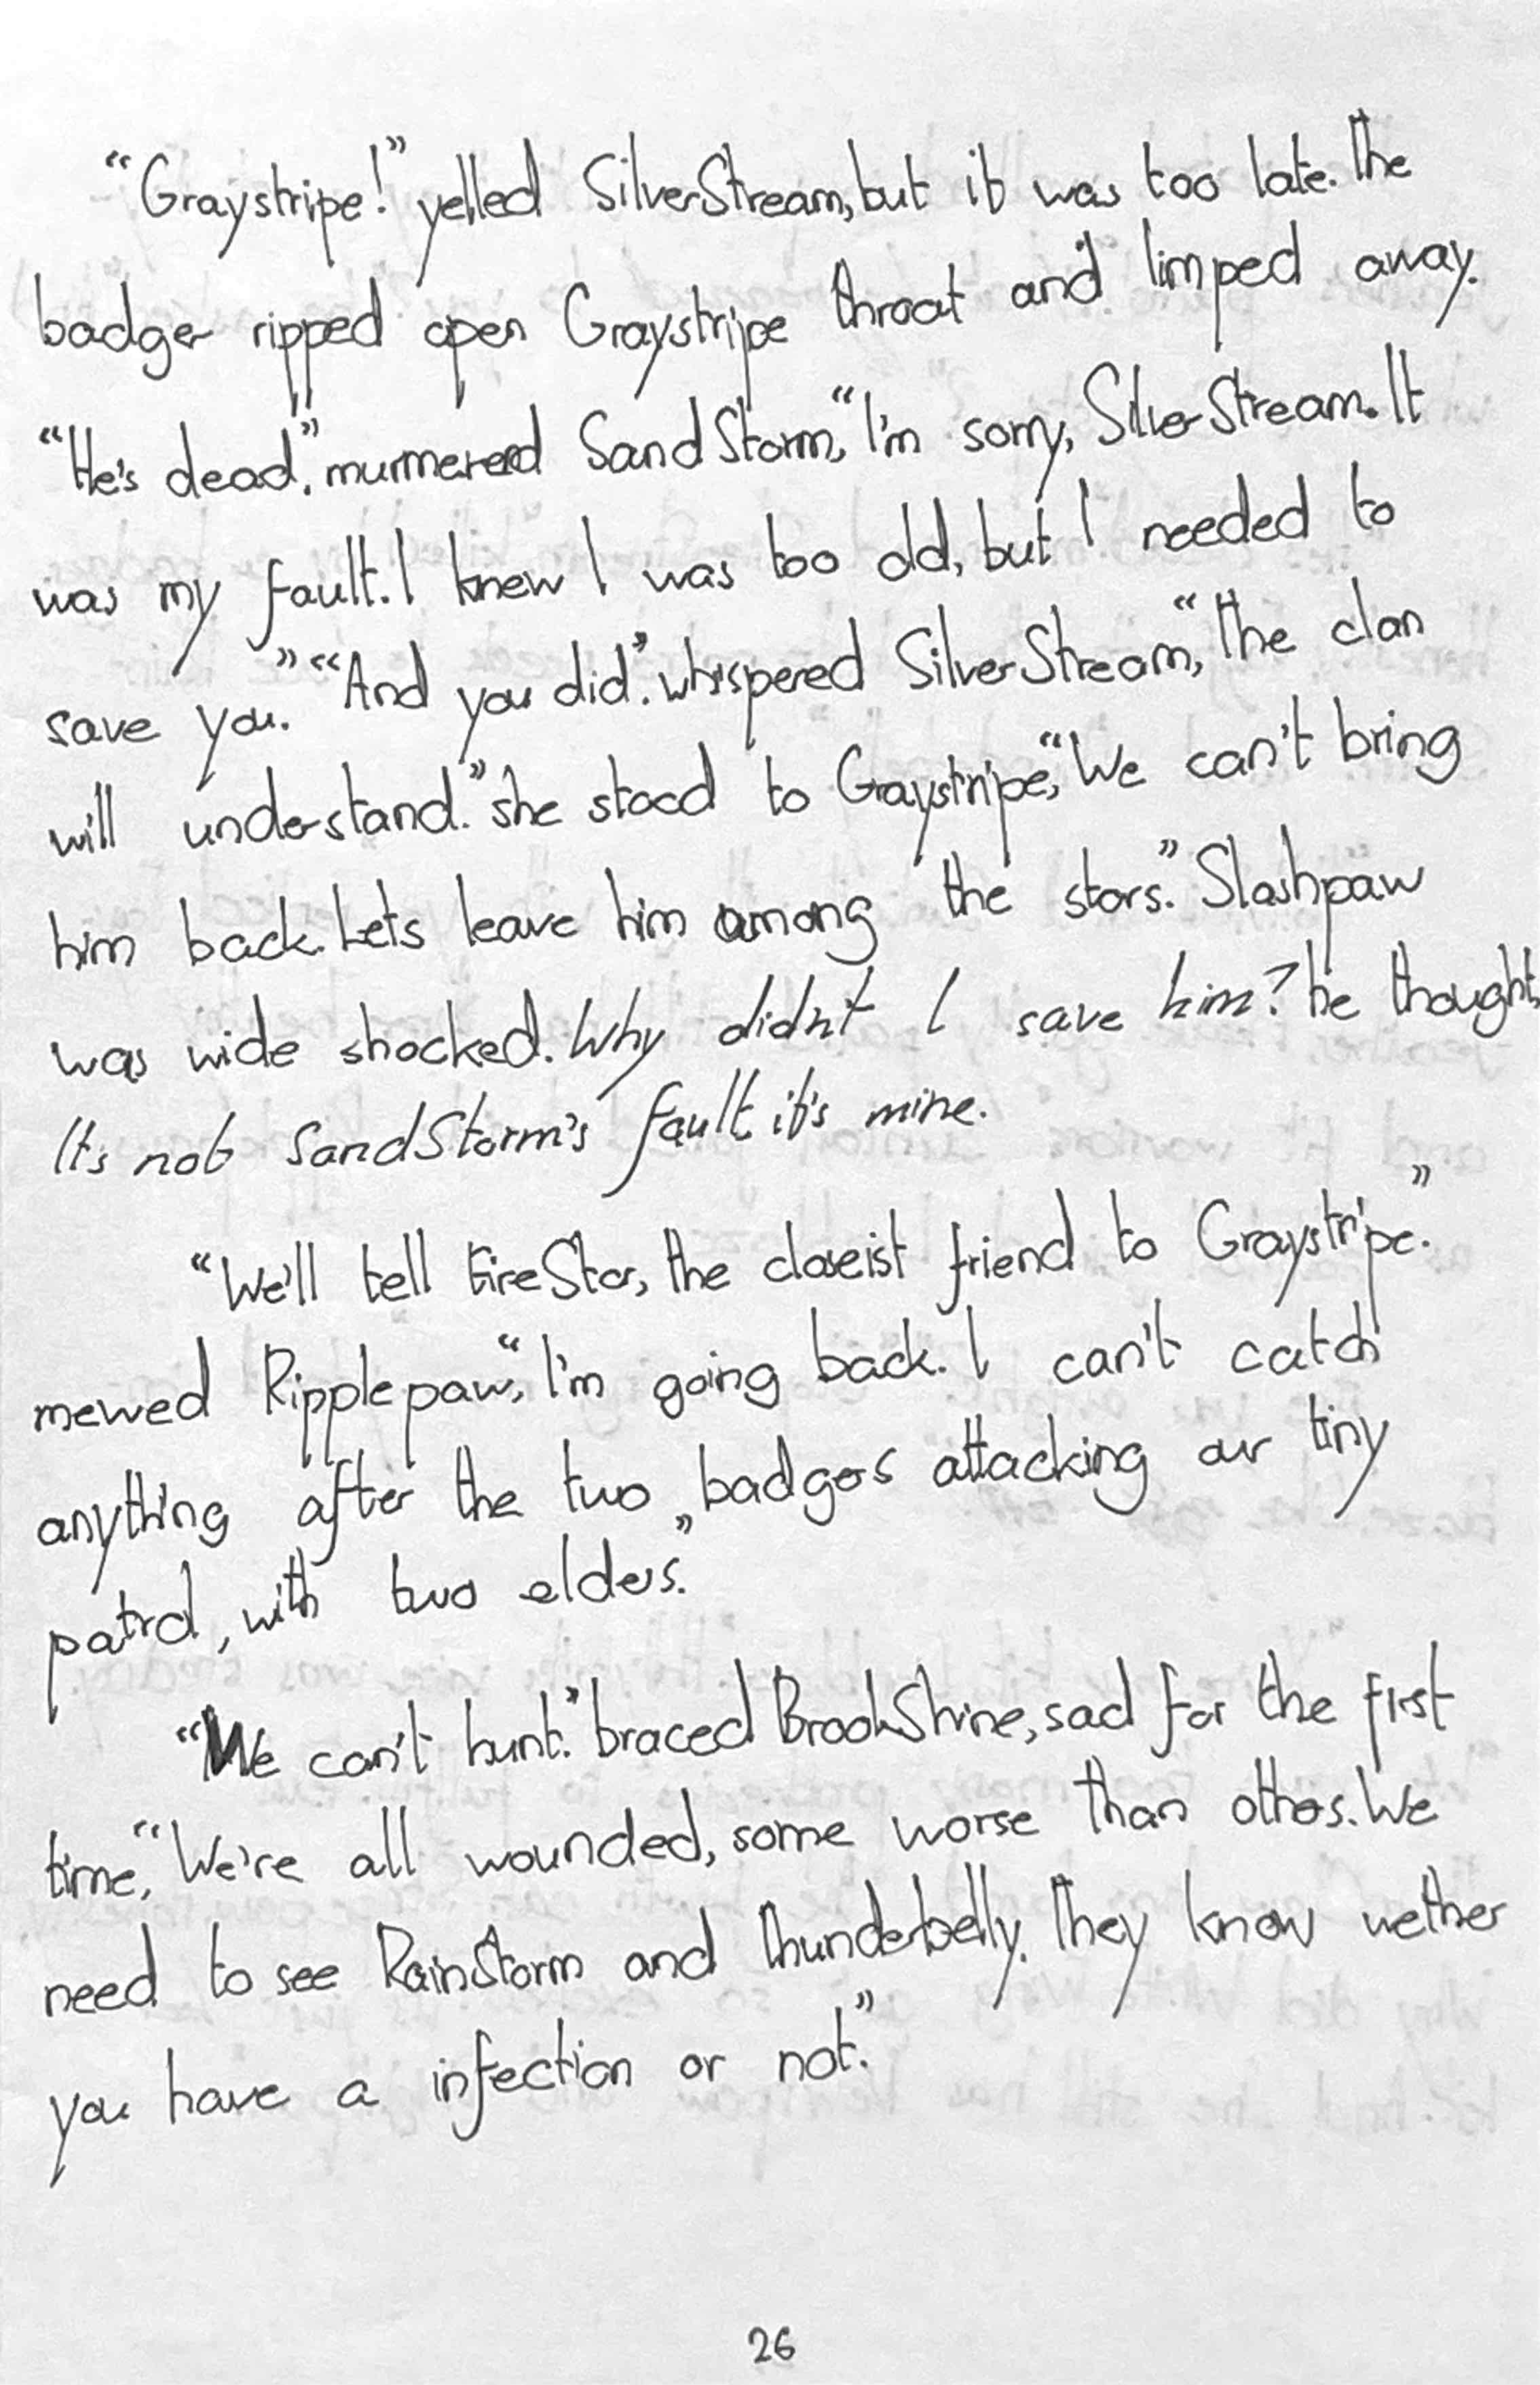 “Graystripe!” yelled SilverStream, but it was too late. The
badger ripped open Graystripe throat and limped away.
“He's dead.” murmerered SandStorm, “I'm sorry, SilverStream. It
was my fault. I knew I was too old, but I needed to
save you.” “And you did.” whispered SilverStream, “The clan
will understand.” she stood to Graystripe, “We can't bring
him back. Lets leave him among the stars.” Slashpaw
was wide shocked. Why didn't I save him? he thought,
It's not SandStorm's fault it's mine.
“We'll tell FireStar, the closeist friend to Graystripe.”
mewed Ripplepaw, “I'm going back. I can't catch
anything after the two badgers attacking our tiny
patrol, with two elders.”
“We can't hunt.” braced BrookShine, sad for the first
time, “We're all wounded, some worse than others. We
need to see RainStorm and Thunderbelly. They know wether
you have a infection or not.”
26